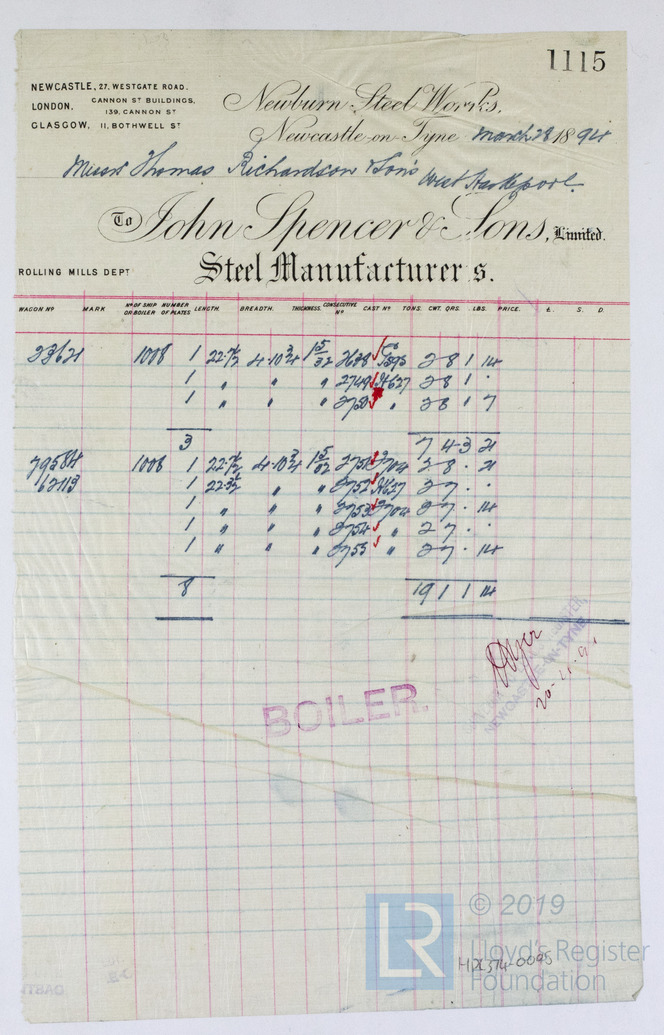 1115
NEWCASTLE, 27, WESTGATE ROAD.
LONDON, CANNON ST BUILDINGS, 139, CANNON ST
GLASGOW, 11, BOTHWELL ST
Newburn Steel Works,
Newcastle-on-Tyne March 28 1894
Messrs Thomas Richardson & Sons West Hartlepool
To John Spencer & Sons, Limited.
ROLLING MILLS DEPT
Steel Manufacturers.
WAGON NO MARK NO OF SHIP OR BOILER NUMBER OF PLATES LENGTH. BREADTH. THICKNESS. CONSECUTIVE NO CAST NO TONS. CWT. QRS. LBS. PRICE. £. S. D.
1008 1 4·10 3/4 15/32 2638 28 1 14
1 " " " 2749 H627 28 1 ·
1 " " " 2750 " 28 1 7
3 7 4 3 21
79584 1008 1 4·10 3/4 15/32 2751 7704 28 · 21
62113 1 " " 2752 H627 27 · ·
1 " " " 2753 7704 27 · 14
1 " " " 2754 " 27 · ·
1 " " " 2755 " 27 · 14
8 19 1 1 14
NEWCASTLE-ON-TYNE
BOILER.
© 2019
LR Lloyd's Register
Foundation
HPL374-0095